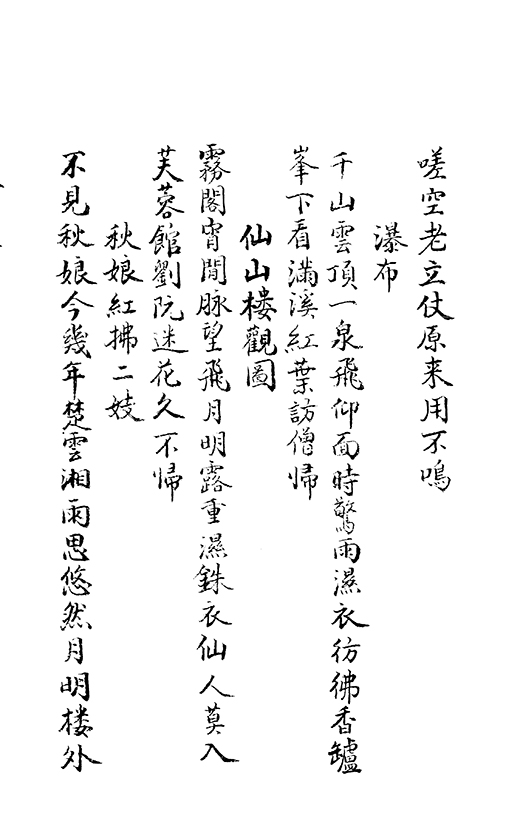 嗟空老立仗原来用不鳴
瀑布
千山雲頂一泉飛仰面時驚雨濕衣彷彿香罏
峯下看滿溪紅葉訪僧㱕
仙山楼觀圖
霧閣宵閒脉望飛月明露重濕銖衣仙人莫入
芙蓉館劉阮迷花久不㱕
秋娘紅拂二妓
不見秋娘今幾年楚雲湘雨思悠然月明楼外